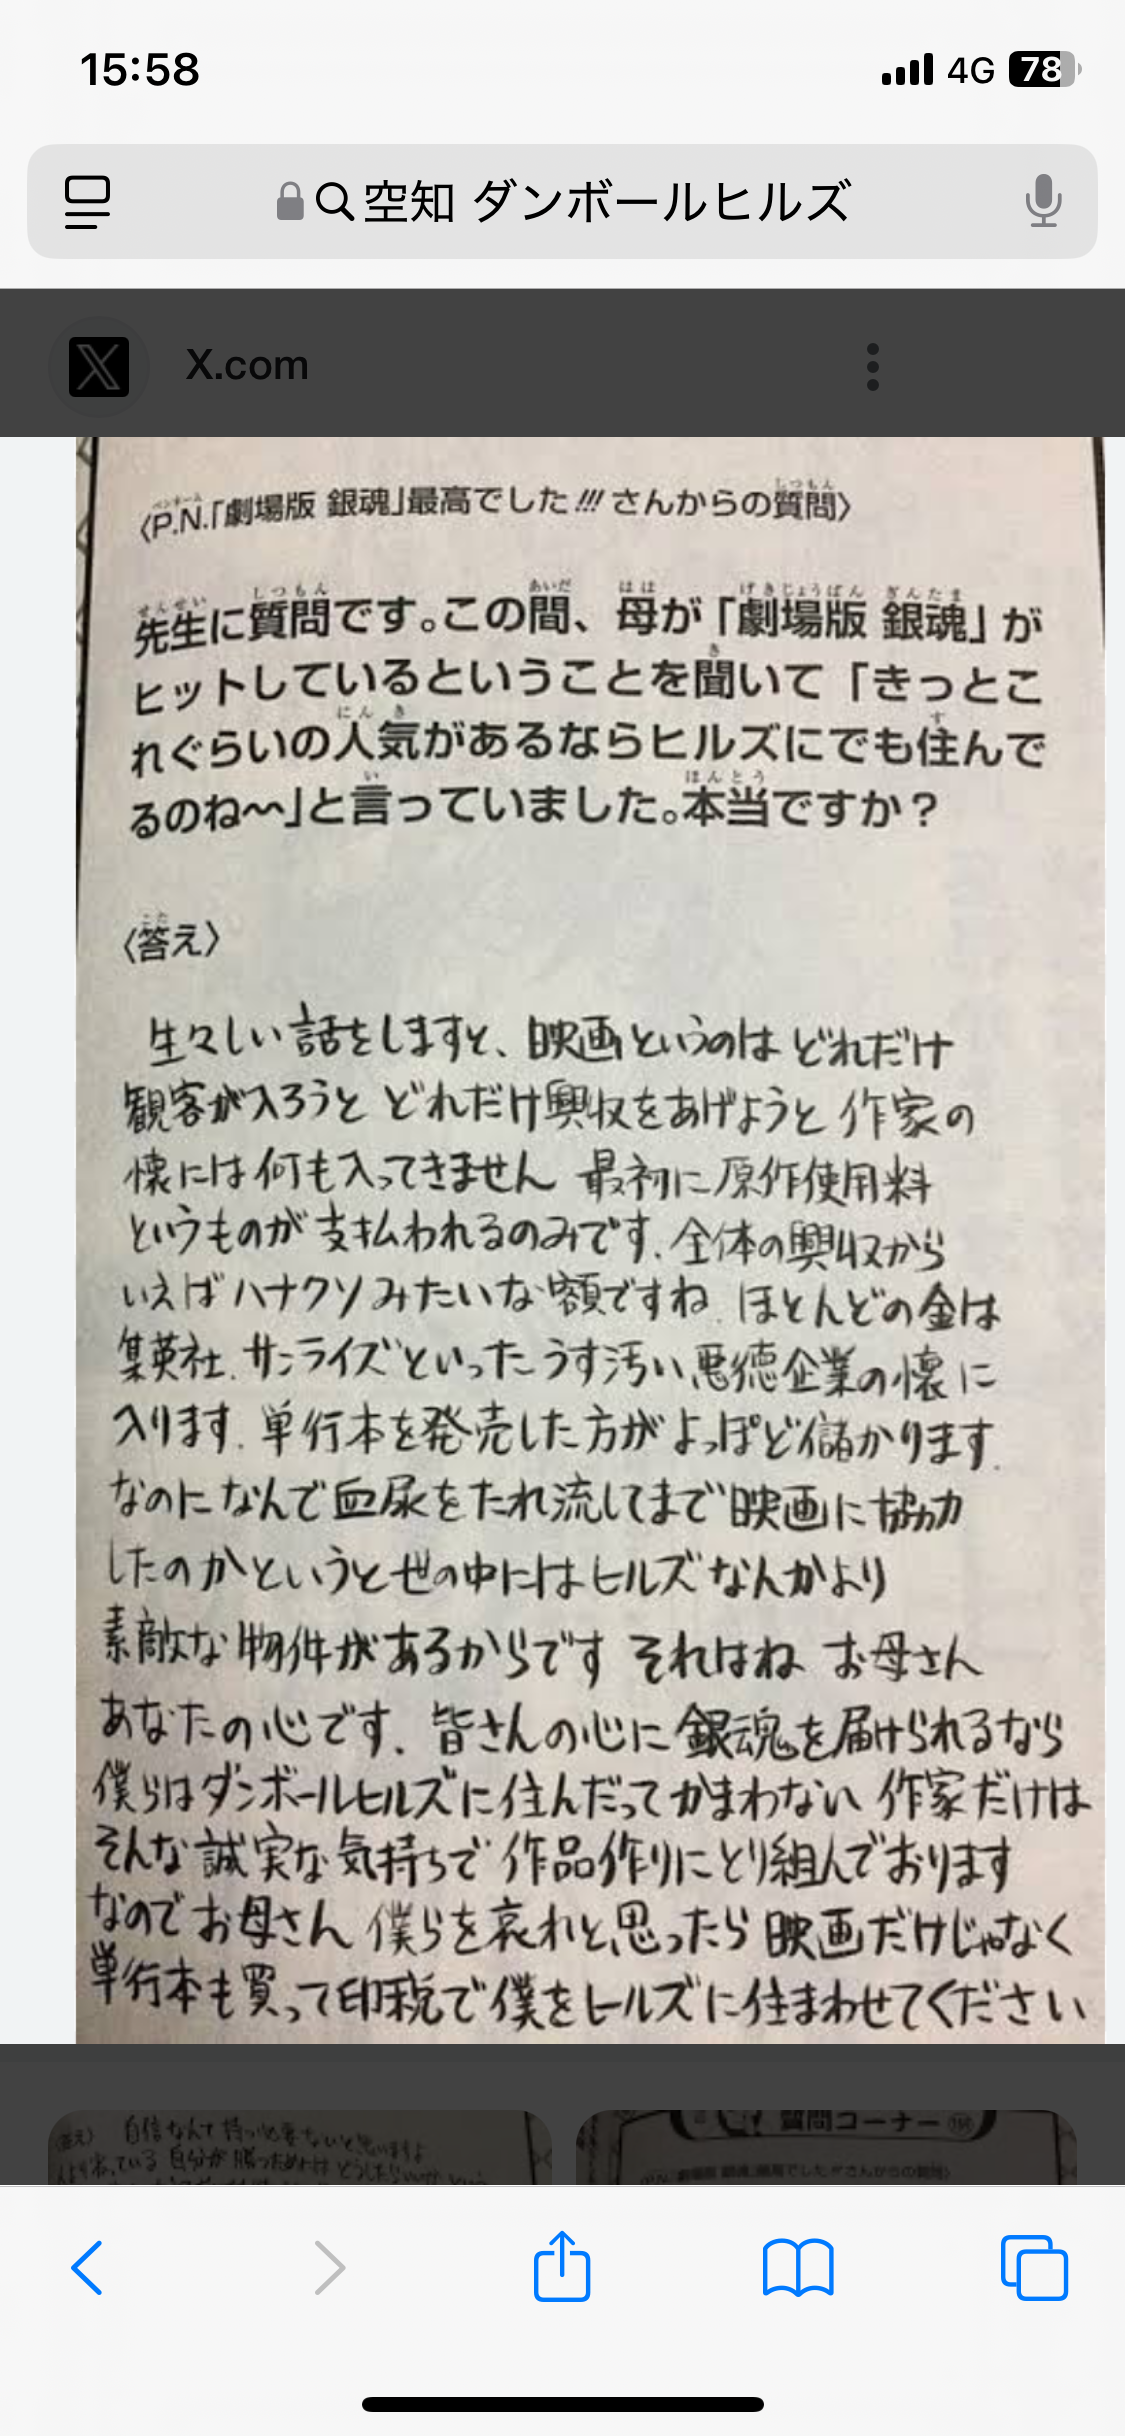 15:58
4G 78
空知 ダンボールヒルズ
X.com
〈P.N.「劇場版 銀魂」最高でした!!! さんからの質問〉
先生に質問です。この間、母が「劇場版 銀魂」が
ヒットしているということを聞いて「きっとこ
れぐらいの人気があるならヒルズにでも住んで
るのね〜〜」と言っていました。本当ですか？
〈答え〉
生々しい話をしますと、映画というのは どれだけ
観客が入ろうと どれだけ興収をあげようと 作家の
懐には何も入ってきません 最初に原作使用料
というものが支払われるのみです.全体の興収から
いえばハナクソみたいな額ですね.ほとんどの金は
集英社.サンライズといったうす汚い悪徳企業の懐に
入ります.単行本を発売した方がよっぽど儲かります.
なのになんで血尿をたれ流してまで映画に協力
したのかというと世の中にはヒルズなんかより
素敵な物件があるからです それはね お母さん
あなたの心です.皆さんの心に銀魂を届けられるなら
僕らはダンボールヒルズに住んだってかまわない 作家だけは
そんな誠実な気持ちで作品作りにとり組んでおります
なのでお母さん 僕らを哀れと思ったら 映画だけじゃなく
単行本も買って印税で僕をヒルズに住まわせてください
〈答え〉 自信なんて持つ必要ないと思いますよ
質問コーナー
〈P.N.「劇場版 銀魂」最高でした!!! さんからの質問〉